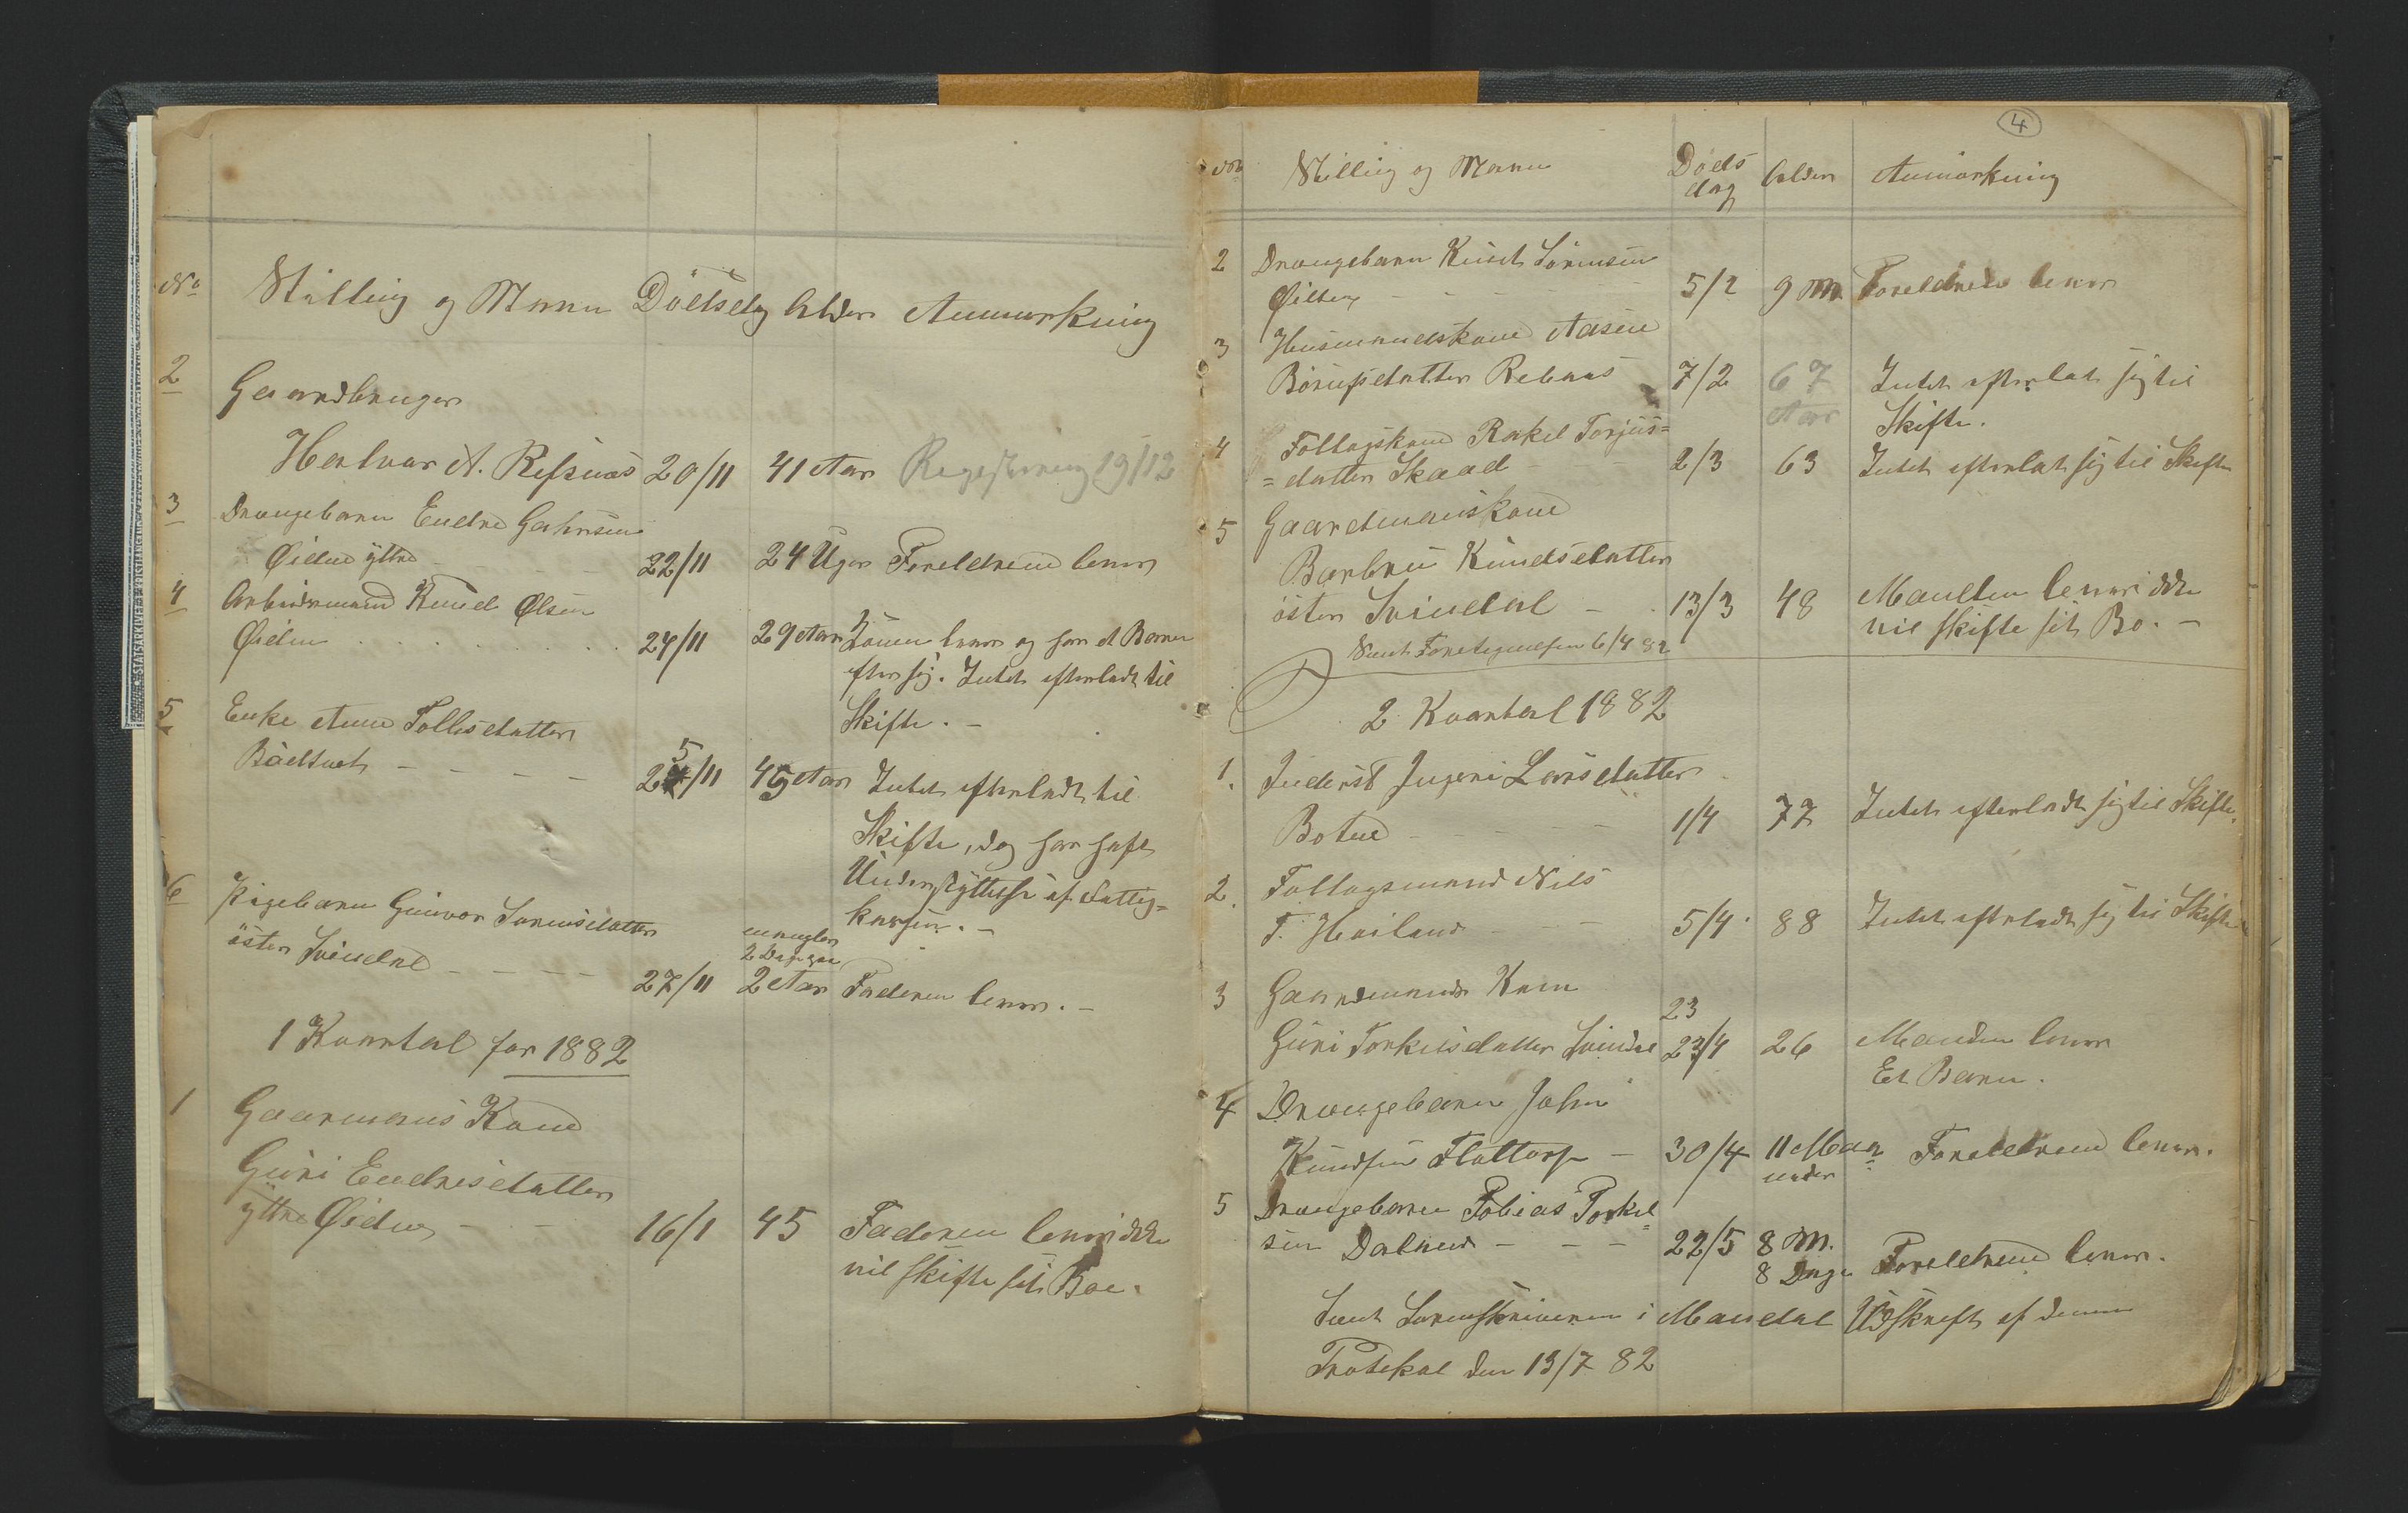 No Stilling og Navn Dödsdag Alder Anmærkning
2 Gaardbruger
Halvor A. Refsnæs 20/11 41 Aar Registrering 19/12
3 Drængebarn Endre
Øidne ÿttre 22/11 24 Uger Foreldrene lever
4 Arbeidsmand Knud Olsen
Øidne 24/11 29 Aar Konen lever og har et Barn
efter sig. Intet efterladt til
Skifte. -
5 Enke Anne Tollisdatter
25/11 45 Aar Intet efterladt til
Skifte, dog har haft
Understÿttelse af Fattig=
kassen. -
6 Pigebarn Gunvor Sørensdatter
öster Svindal 27/11 2 Aar Faderen lever. -
mangler
2 Dage
1 Kvartal for 1882
1 Gaarmans Kone
Guri Endresdatter
ÿttre Øidne 16/1 45 Faderen lever ikke
vil skifte sit Boe.
4
No Stilling og Navn Döds Alder Anmærkning
dag
2 Drængebarn Knud Sörensen
5/2 9 M. Foreldrene lever
3 Husmandskone Aasne
Börufsdatter Refsnæs 7/2 67 Intet efterlat sig til
Aar Skifte.
4 Follogskone Rakel Torjus=
=datter Skaad 2/3 63 Intet efterlat sig til Skifte
5 Gaardmanskone
Barbru Knudsdatter
öster Svindal - 13/3 48 Manden lever ikke
vil skifte sit Bo. -
Sent Fortegnelsen 6/4 82
2 Kvartal 1882
1. Inderst Ingeri Larsdatter
Botne 1/4 77 Intet efterladt sig til Skifte.
2. Follogsmand Nils
T. Heiland 5/4 88 Intet efterladt sig til Skifte
3 Gaardmands Kone 23
Guri Torkilsdatter Svindal 23/4 26 Manden lever
Et Barn.
4 Drængebarn John
Knudsen Flottorp - 30/4 11 Maa Foreldrene lever.
neder
5 Drængebarn Tobias Torkel=
sen 22/5 8 M. Foreldrene lever.
8 Dage
Sent Sorenskriveren i Mandal Udskrift af denne
Protokol den 13/7 82